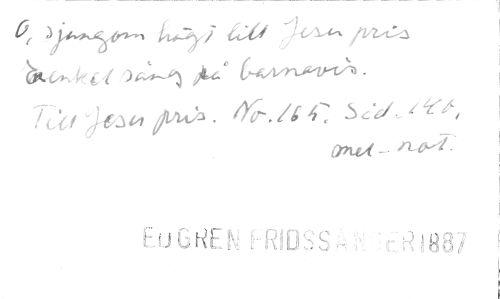 O, sjungom högt till Jesu pris
En enkel sång på barnavis.
Till Jesu pris. No. 165. Sid. 140.
mel-not.
EUGREN FRIDSSÅNGER 1887